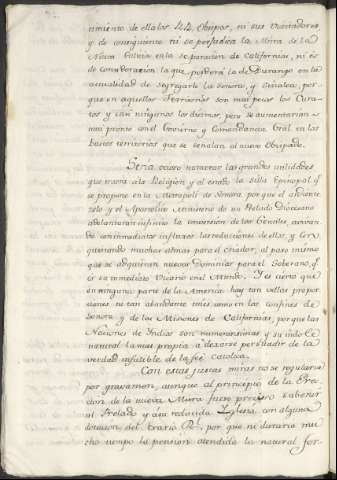 nimiento de ellas los Obispos, ni sus Visitadores
y de consiguiente ni se perjudica la Mitra de la
Nueva Galicia en la separacion de Californias, ni es
de consideracion la que pudiera la de Durango en la
actualidad de segregarle la Sonora, y Sinaloa, por
que en aquellos Territorios son muy pocos los Cura
tos y casi ningunos los diezmos, pero se aumentarian
mui pronto con el Govierno y Comandancia Gral en los
bastos territorios que se señalan al nuevo Obispado.
Seria ocioso numerar las grandes utilidades
que traerá á la Religion y al estado la Silla Episcopal q.e
se propone en la Metropoli de Sonora, por que el ardiente
zelo y el Apostolico Ministerio de un Prelado Diocesano
adelantarian infinito la conversion de los Gentiles, acaban
do con inmediatos influxos las reducciones de ellos, y conq
quistando muchas almas para el Criador, al paso mismo
que se adquirian nuevos Dominios para el Soberano, q.e
es su inmediato Vicario en el Mundo. Y es cierto que
en ninguna parte de la America hay tan vellas propor
ciones ni tan abundante mies como en los confines de
Sonora y de las Misiones de Californias, porque las
Naciones de Indios son numerosisimas y su indole
natural la mas propia á dexarse persuadir de la
verdad infalible de la feé Catolica.
Con estas justas miras no se regularia
por gravamen, aunque al principio de la Erec
cion de la nueva Mitra fuese preciso subvenir
al Prelado y á su reducida Yglesia con alguna
dotacion del Erario Rl. por que ni duraria mu
cho tiempo la pension atendida la natural fer-